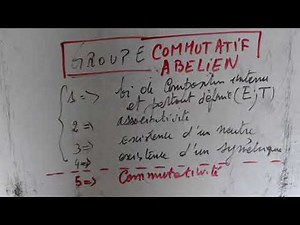 GROUPE COMMUTATIF
ABELIEN
1 => loi de Composition interne
et partout définie (E, T)
2 => associativité
3 => existence d'un neutre
4 => existence d'un symétrique
5 => Commutativité